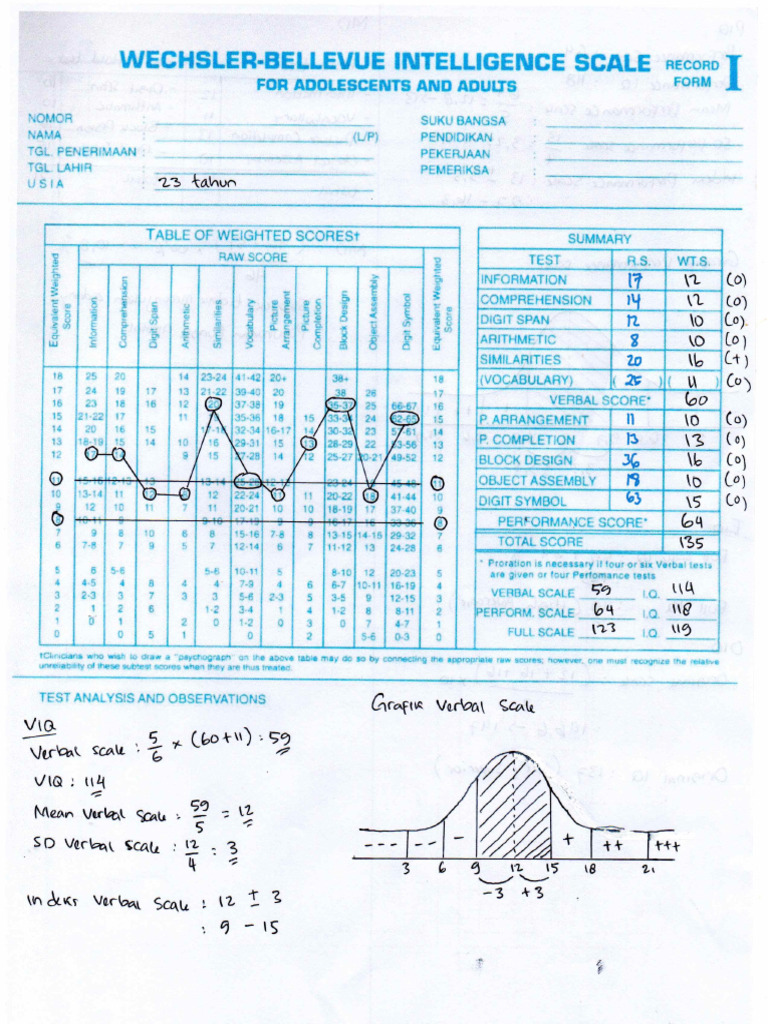 WECHSLER-BELLEVUE INTELLIGENCE SCALE RECORD FORM I
FOR ADOLESCENTS AND ADULTS
NOMOR :
NAMA : (L/P)
TGL. PENERIMAAN :
TGL. LAHIR :
USIA : 23 tahun
SUKU BANGSA :
PENDIDIKAN :
PEKERJAAN :
PEMERIKSA :
TABLE OF WEIGHTED SCORES†
RAW SCORE
Equivalent Weighted Score
Information
Comprehension
Digit Span
Arithmetic
Similarities
Vocabulary
Picture Arrangement
Picture Completion
Block Design
Object Assembly
Digit Symbol
Equivalent Weighted Score
18 25 20 14 23-24 41-42 20+ 38+ 18
17 24 19 17 13 21-22 39-40 20 38 26 17
16 23 18 16 12 20 37-38 19 35-37 25 66-67 16
15 21-22 17 11 35-36 18 15 24 62-65 15
14 20 16 15 32-34 16-17 14 23 57-61 14
13 18-19 15 14 10 16 29-31 15 13 28-29 22 53-56 13
12 17 14 9 15 27-28 14 12 25-27 20-21 49-52 12
11 15-16 12-13 13 13-14 25-26 12-13 23-24 45-48 11
10 13-14 11 12 8 22-24 11 11 20-22 18 41-44 10
9 12 10 11 7 11 20-21 10 10 18-19 17 37-40 9
8 10-11 9 9-10 17-19 9 16-17 33-36 8
7 9 8 10 6 8 15-16 7-8 8 13-15 14-15 29-32 7
6 7-8 7 9 5 7 12-14 6 7 11-12 13 24-28 6
5 6 5-6 5-6 10-11 5 8-10 12 20-23 5
4 4-5 4 8 4 4 7-9 4 6 6-7 10-11 16-19 4
3 2-3 3 7 3 3 5-6 2-3 5 3-5 9 12-15 3
2 1 2 6 2 1-2 3-4 1 4 1-2 8 8-11 2
1 0 1 2 0 1-2 0 3 0 7 4-7 1
0 0 5 1 0 2 5-6 0-3 0
†Clinicians who wish to draw a "psychograph" on the above table may do so by connecting the appropriate raw scores; however, one must recognize the relative
unreliability of these subtest scores when they are thus treated.
SUMMARY
TEST R.S. WT.S.
INFORMATION 17 12 (0)
COMPREHENSION 14 12 (0)
DIGIT SPAN 12 10 (0)
ARITHMETIC 8 10 (0)
SIMILARITIES 20 16 (+)
(VOCABULARY) (25) (11) (0)
VERBAL SCORE* 60
P. ARRANGEMENT 11 10 (0)
P. COMPLETION 13 13 (0)
BLOCK DESIGN 36 16 (0)
OBJECT ASSEMBLY 18 10 (0)
DIGIT SYMBOL 63 15 (0)
PERFORMANCE SCORE* 64
TOTAL SCORE 135
* Proration is necessary if four or six Verbal tests
are given or four Perfomance tests
VERBAL SCALE 59 I.Q. 114
PERFORM. SCALE 64 I.Q. 118
FULL SCALE 123 I.Q. 119
TEST ANALYSIS AND OBSERVATIONS
VIQ
Verbal scale : 5/6 × (60+11) : 59
VIQ : 114
Mean Verbal Scale : 59/5 = 12
SD Verbal Scale : 12/4 = 3
Indeks Verbal Scale : 12 ± 3
: 9 - 15
Grafik Verbal Scale
--- -- - + ++ +++
3 6 9 12 15 18 21
-3 +3